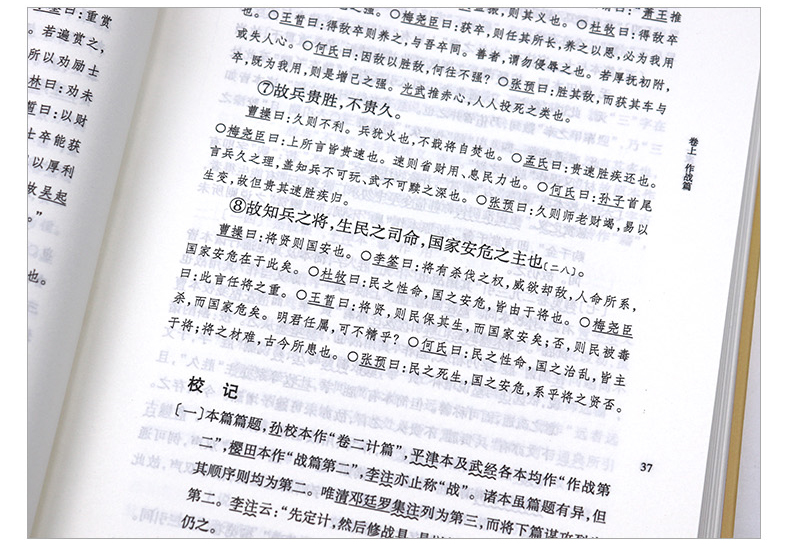 萧王推
强，则其义也。○杜牧曰：得敌卒
○王晳曰：得敌卒则养之，与吾卒同。○梅尧臣曰：获卒，则任其所长，养之以恩，必为我用
或失人心。○何氏曰：因敌以胜敌，何往不强？善者，谓勿侵辱之也。若厚抚初附，
卒，既为我用，则是增己之强。光武推赤心，人人投死之类也。○张预曰：胜其敌，而获其车与
⑦故兵贵胜，不贵久。
曹操曰：久则不利。兵犹火也，不戢将自焚也。○孟氏曰：贵速胜疾还也。
○梅尧臣曰：上所言皆贵速也。速则省财用、息民力也。○何氏曰：孙子首尾
言兵久之理，盖知兵不可玩、武不可黩之深也。○张预曰：久则师老财竭，易以
生变，故但贵其速胜疾归。
⑧故知兵之将，生民之司命，国家安危之主也〔二八〕。
曹操曰：将贤则国安也。○李筌曰：将有杀伐之权，威欲却敌，人命所系，
国家安危在于此矣。○杜牧曰：民之性命，国之安危，皆由于将也。○梅尧臣
曰：此言任将之重。○王晳曰：将贤，则民保其生，而国家安矣；否，则民被毒
杀，而国家危矣。明君任属，可不精乎？○何氏曰：民之性命，国之治乱，皆主
于将；将之材难，古今所患也。○张预曰：民之死生，国之安危，系乎将之贤否。
校 记
〔一〕本篇篇题，孙校本作“卷二计篇”，平津本及武经各本均作“作战第
二”，樱田本作“战篇第二”，李注亦止称“战”。诸本虽篇题有异，但
其顺序则均为第二。唯清邓廷罗集注列为第三，而将下篇谋攻列
第二。李注云：“先定计，然后修战具，
仍之。
卷上 作战篇
37
曰：重赏
。若遍赏之，
所以劝励士
林曰：劝未
晳曰：以财
士卒能获
以厚利
故吴起
。”
也。